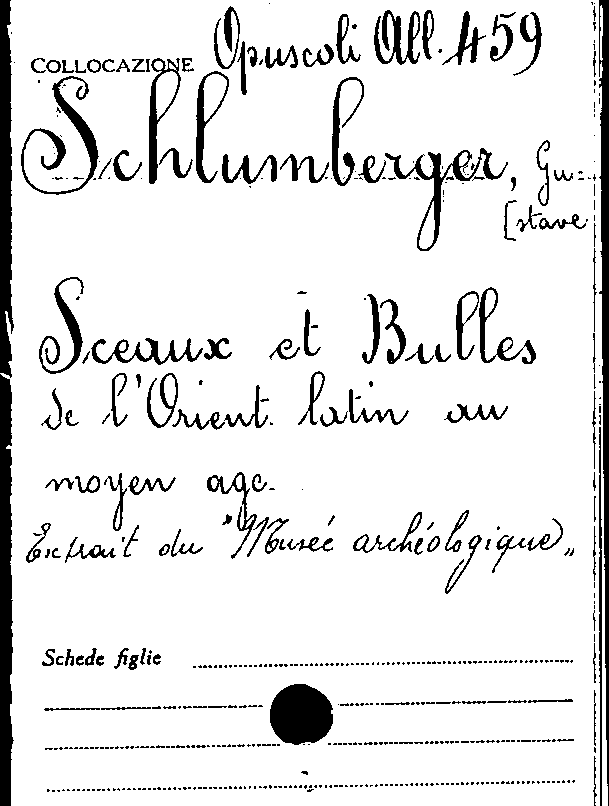 COLLOCAZIONE Opuscoli All. 459
Schlumberger, Gu=
[stave
Sceaux et Bulles
de l'Orient latin au
moyen age.
Extrait du "Musée archéologique„
Schede figlie